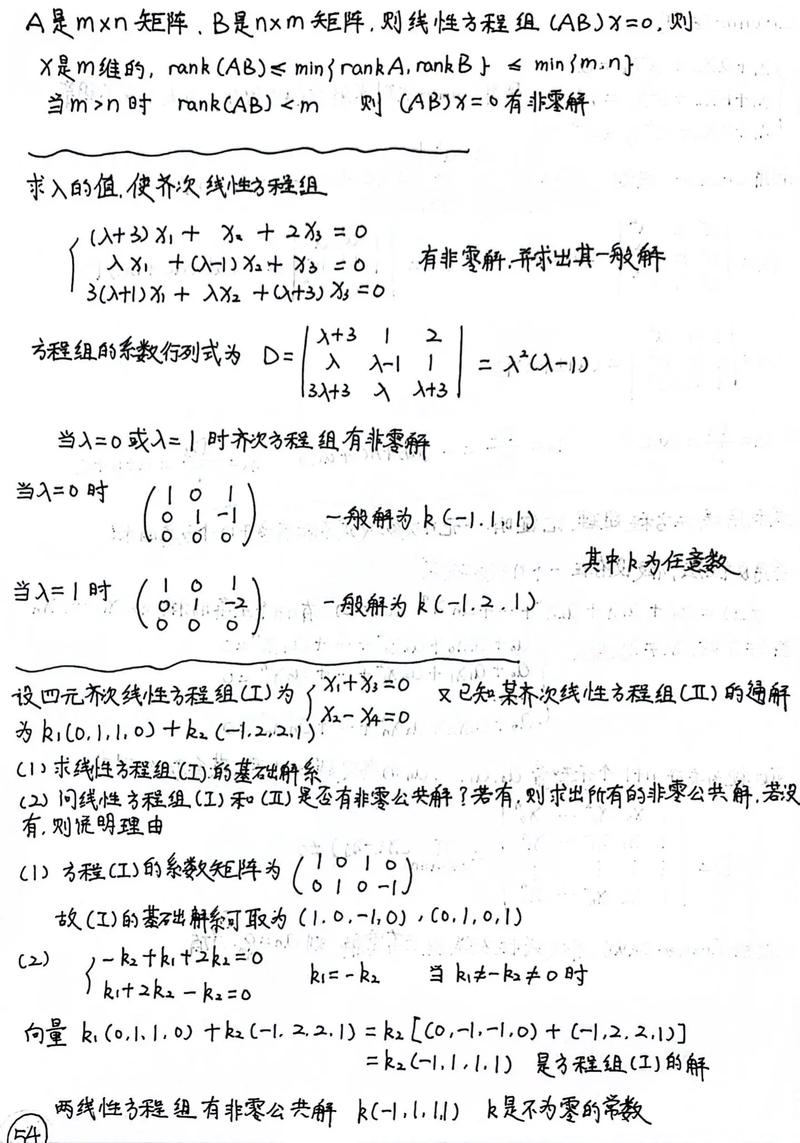 A是m×n矩阵、B是n×m矩阵,则线性方程组 (AB)X=0,则
X是m维的, rank(AB)≤min{rankA,rankB} ≤ min{m,n}
当m>n时 rank(AB)<m 则 (AB)X=0有非零解
求λ的值,使齐次线性方程组
(λ+3)X₁+ X₂ + 2X₃ = 0
λX₁ +(λ-1)X₂+ X₃ = 0
3(λ+1)X₁+ λX₂ +(λ+3)X₃=0
有非零解,并求出其一般解
方程组的系数行列式为 D= | λ+3 1 2 |
| λ λ-1 1 | = λ²(λ-1)
| 3λ+3 λ λ+3 |
当λ=0或λ=1时齐次方程组有非零解
当λ=0时 ( 1 0 1 )
( 0 1 -1 ) 一般解为 k(-1,1,1)
( 0 0 0 )
其中k为任意数
当λ=1时 ( 1 0 1 )
( 0 1 -2 ) 一般解为 k(-1,2,1)
( 0 0 0 )
设四元齐次线性方程组(I)为 { X₁+X₃=0 又已知某齐次线性方程组(II)的通解
X₂-X₄=0
为k₁(0,1,1,0)+k₂(-1,2,2,1)
(1)求线性方程组(I)的基础解系
(2)问线性方程组(I)和(II)是否有非零公共解?若有,则求出所有的非零公共解,若没
有,则说明理由
(1) 方程(I)的系数矩阵为 ( 1 0 1 0 )
( 0 1 0 -1 )
故(I)的基础解系可取为 (1,0,-1,0),(0,1,0,1)
(2) { -k₂+k₁+2k₂=0
k₁+2k₂-k₂=0
k₁=-k₂ 当k₁≠-k₂≠0时
向量 k₁(0,1,1,0)+k₂(-1,2,2,1)=k₂[(0,-1,-1,0)+(-1,2,2,1)]
=k₂(-1,1,1,1) 是方程组(I)的解
两线性方程组有非零公共解 k(-1,1,1,1) k是不为零的常数
54